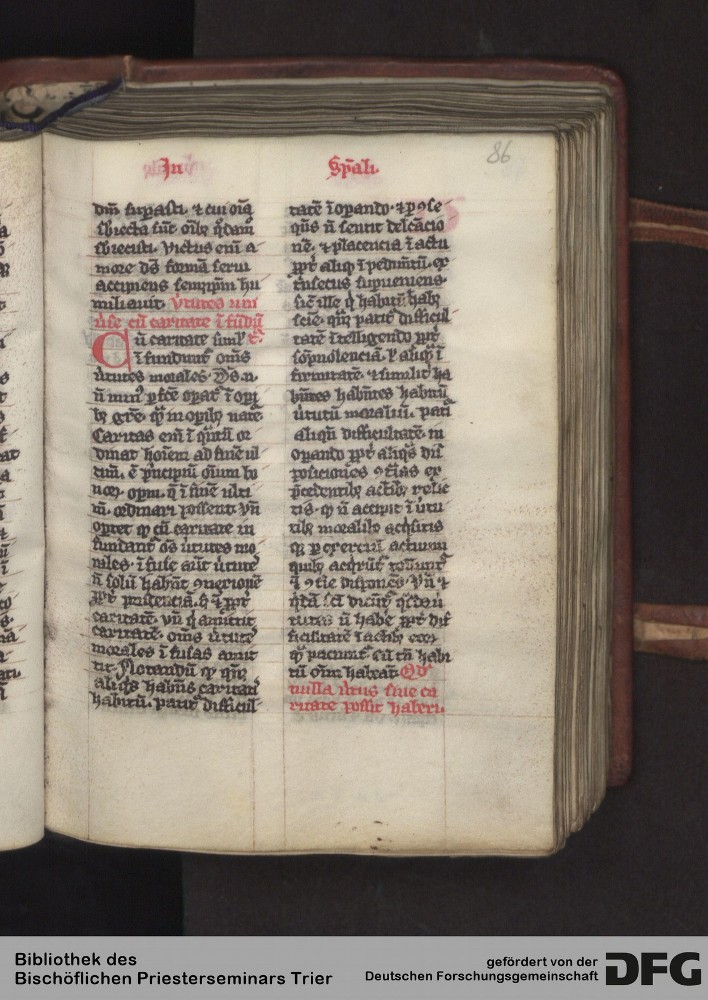 In
Sp̄ali.
86
dm̄ suꝑasti. ⁊ cui oīa
sb̄iecta sūt oīb;
sb̄iecisti. Victus eni a
more ds̄ formā serui
accipiens semetip̄m hu
miliauit. v̄tutes uni
ūse cū caritate ī fūdū
Cū caritate simul
ī fundunt᷑ om̄s
ūtutes morales. Ds̄. n.
Caritas eni ī q̄ntū or
dinat hoīem ad finē ul
tim̄. ē p̄ncipiū oīum bo
noꝝ opm. q̄ ī finē ulti
m̄. ordinari possunt. Vn̄
oportet ꝙ cū caritate in
fundant᷑ oēs ūtutes mo
rales. ī fuse aūt ūtutes
n̄ solū habent ꝯnexionē
ꝓpt᷑ prudenciā. s; ⁊ ꝓpt᷑
caritatē. vn̄ q̄ amittit
caritatē. om̄s ūtutes
morales ī fusas amit
tit. Notandū ꝙ
aliq̄s habēs caritatis
habitū. patit᷑ difficul
tatē ī oꝑando. ⁊ ꝑ ꝯse
q̄ns n̄ sentit delc̄acio
nē. ⁊ ꝯplacencia ī actu
ꝓpt᷑ aliq̄ īpedim̄tū. ex
trinsecus supueniens.
sic̄ ille q̄ habitū habꝫ
scīe. patit᷑ difficul
tatē ītelligendo ꝓpt᷑
sōpnolenciā. ł aliq̄ ī
firmitatē. ⁊ similit᷑ ha
habitū
ūtutū moraliū. pati
aliqn̄ difficultatē in
oꝑando ꝓpt᷑ aliq̄s dis
posiciones ꝯtrias ex
p̄cedentib; actib; relic
tis. ꝙ n̄ accipit ī ūtu
tib; moralib; acq̄sitis
q̄ꝫ ꝑ exerciciū actuum
quib; acq̄runt᷑ tollunt᷑
ꝯtie disp̄ones. Vn̄ ⁊
q̄dā sc̄i dicunt᷑
tutes n̄ habē ꝓpt᷑ dif
ficultatē ī actib;
q̄m paciunt᷑. cū tn̄ habi
tū om̄m habeāt. Qd̄
nulla ūtus sine ca
ritate possit haberi.
Bibliothek des
Bischöflichen Priesterseminars Trier
gefördert von der
Deutschen Forschungsgemeinschaft
DFG